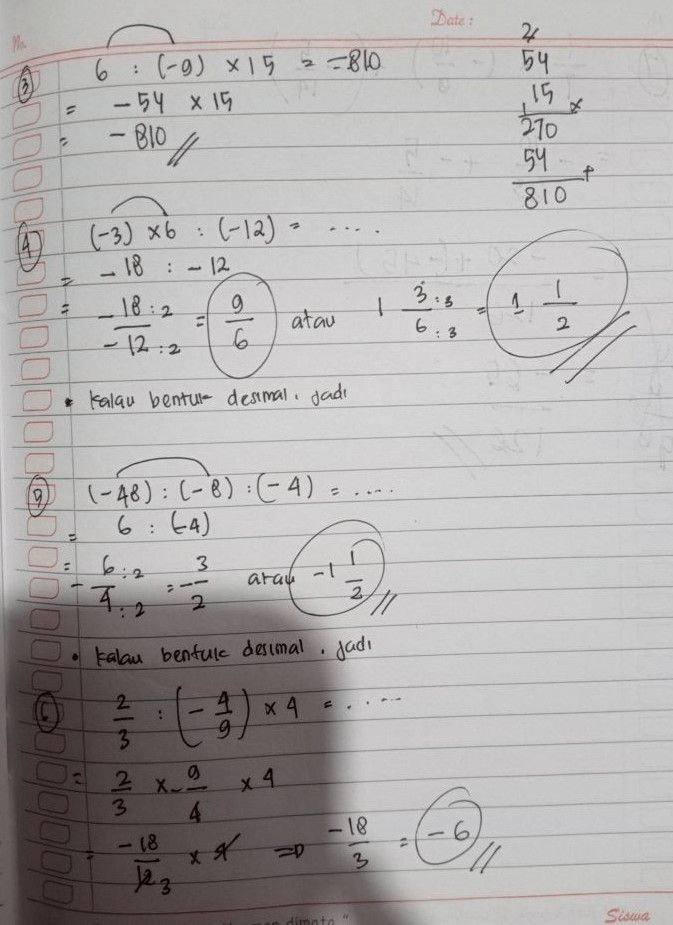 No.
Date :
③ 6 : (-9) × 15 = = -810
= -54 × 15
= -810 //
2
54
15 ×
1
270
54 +
810
④ (-3) × 6 : (-12) = ....
= -18 : -12
= -18 : 2 / -12 : 2 = 9/6 atau 1 3 : 3 / 6 : 3 = 1 1/2 //
• kalau bentuk desimal. Jadi
(-48) : (-8) : (-4) = ....
= 6 : (-4)
= - 6 : 2 / 4 : 2 = - 3/2 atau -1 1/2 //
• kalau bentuk desimal. Jadi
⑥ 2/3 : (- 4/9) × 4 = ....
= 2/3 × - 9/4 × 4
= -18/12 3 × 4 => -18/3 = -6 //
Siswa